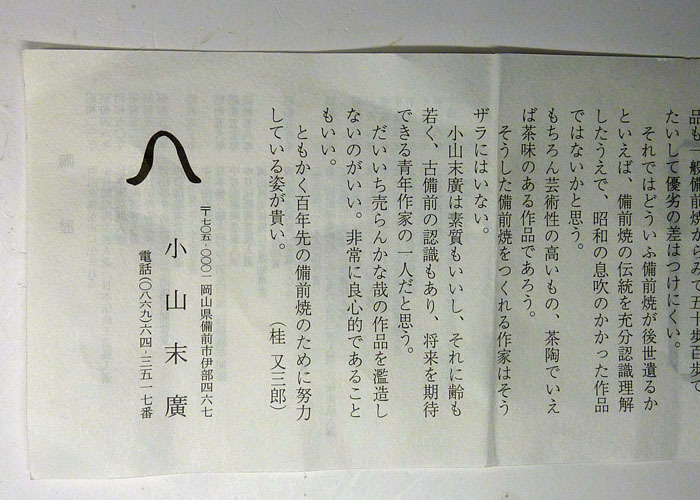 品も一般備前焼からみて五十歩百歩で
たいして優劣の差はつけにくい。
それではどういふ備前焼が後世遺るか
といえば、備前焼の伝統を充分認識理解
したうえで、昭和の息吹のかかった作品
ではないかと思う。
もちろん芸術性の高いもの、茶陶でいえ
ば茶味のある作品であろう。
そうした備前焼をつくれる作家はそう
ザラにはいない。
小山末廣は素質もいいし、それに齢も
若く、古備前の認識もあり、将来を期待
できる青年作家の一人だと思う。
だいいち売らんかな哉の作品を濫造し
ないのがいい。非常に良心的であること
もいい。
ともかく百年先の備前焼のために努力
している姿が貴い。
（桂又三郎）
〒七〇五-〇〇〇一 岡山県備前市伊部四六七
小山末廣
電話(〇八六九)六四-三五一七番